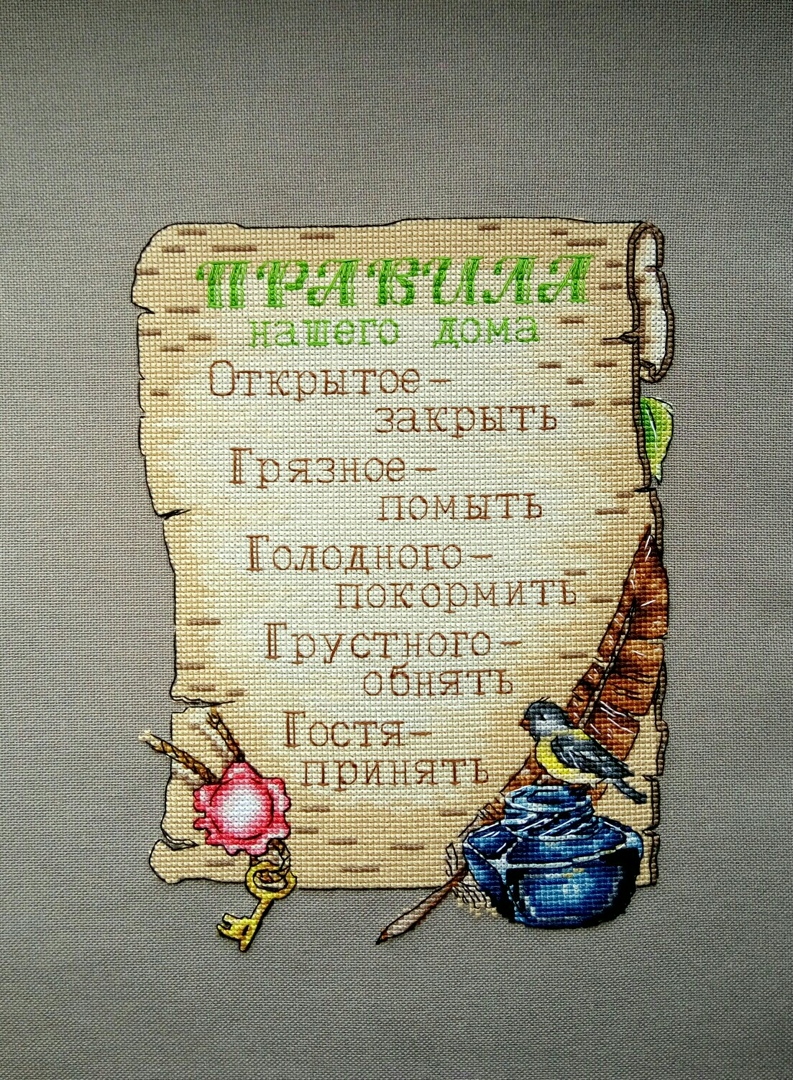 ПРАВИЛА
нашего дома
Открытое–
закрыть
Грязное–
помыть
Голодного–
покормить
Грустного–
обнять
Гостя–
принять